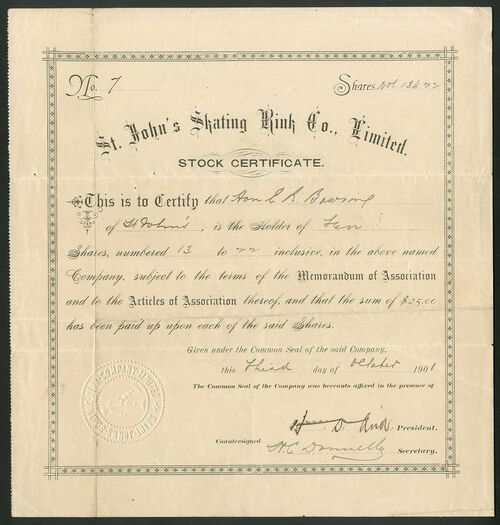 No. 7 Shares No. 13 to 22
St. John's Skating Rink Co., Limited.
STOCK CERTIFICATE.
This is to Certify that Hon E R Bowring
of St John's, is the Holder of Ten
Shares, numbered 13 to 22 inclusive, in the above named
Company, subject to the terms of the Memorandum of Association
and to the Articles of Association thereof, and that the sum of $25.00
has been paid up upon each of the said Shares.
Given under the Common Seal of the said Company,
this Third day of October 1901
The Common Seal of the Company was hereunto affixed in the presence of
President.
Countersigned.
Secretary.